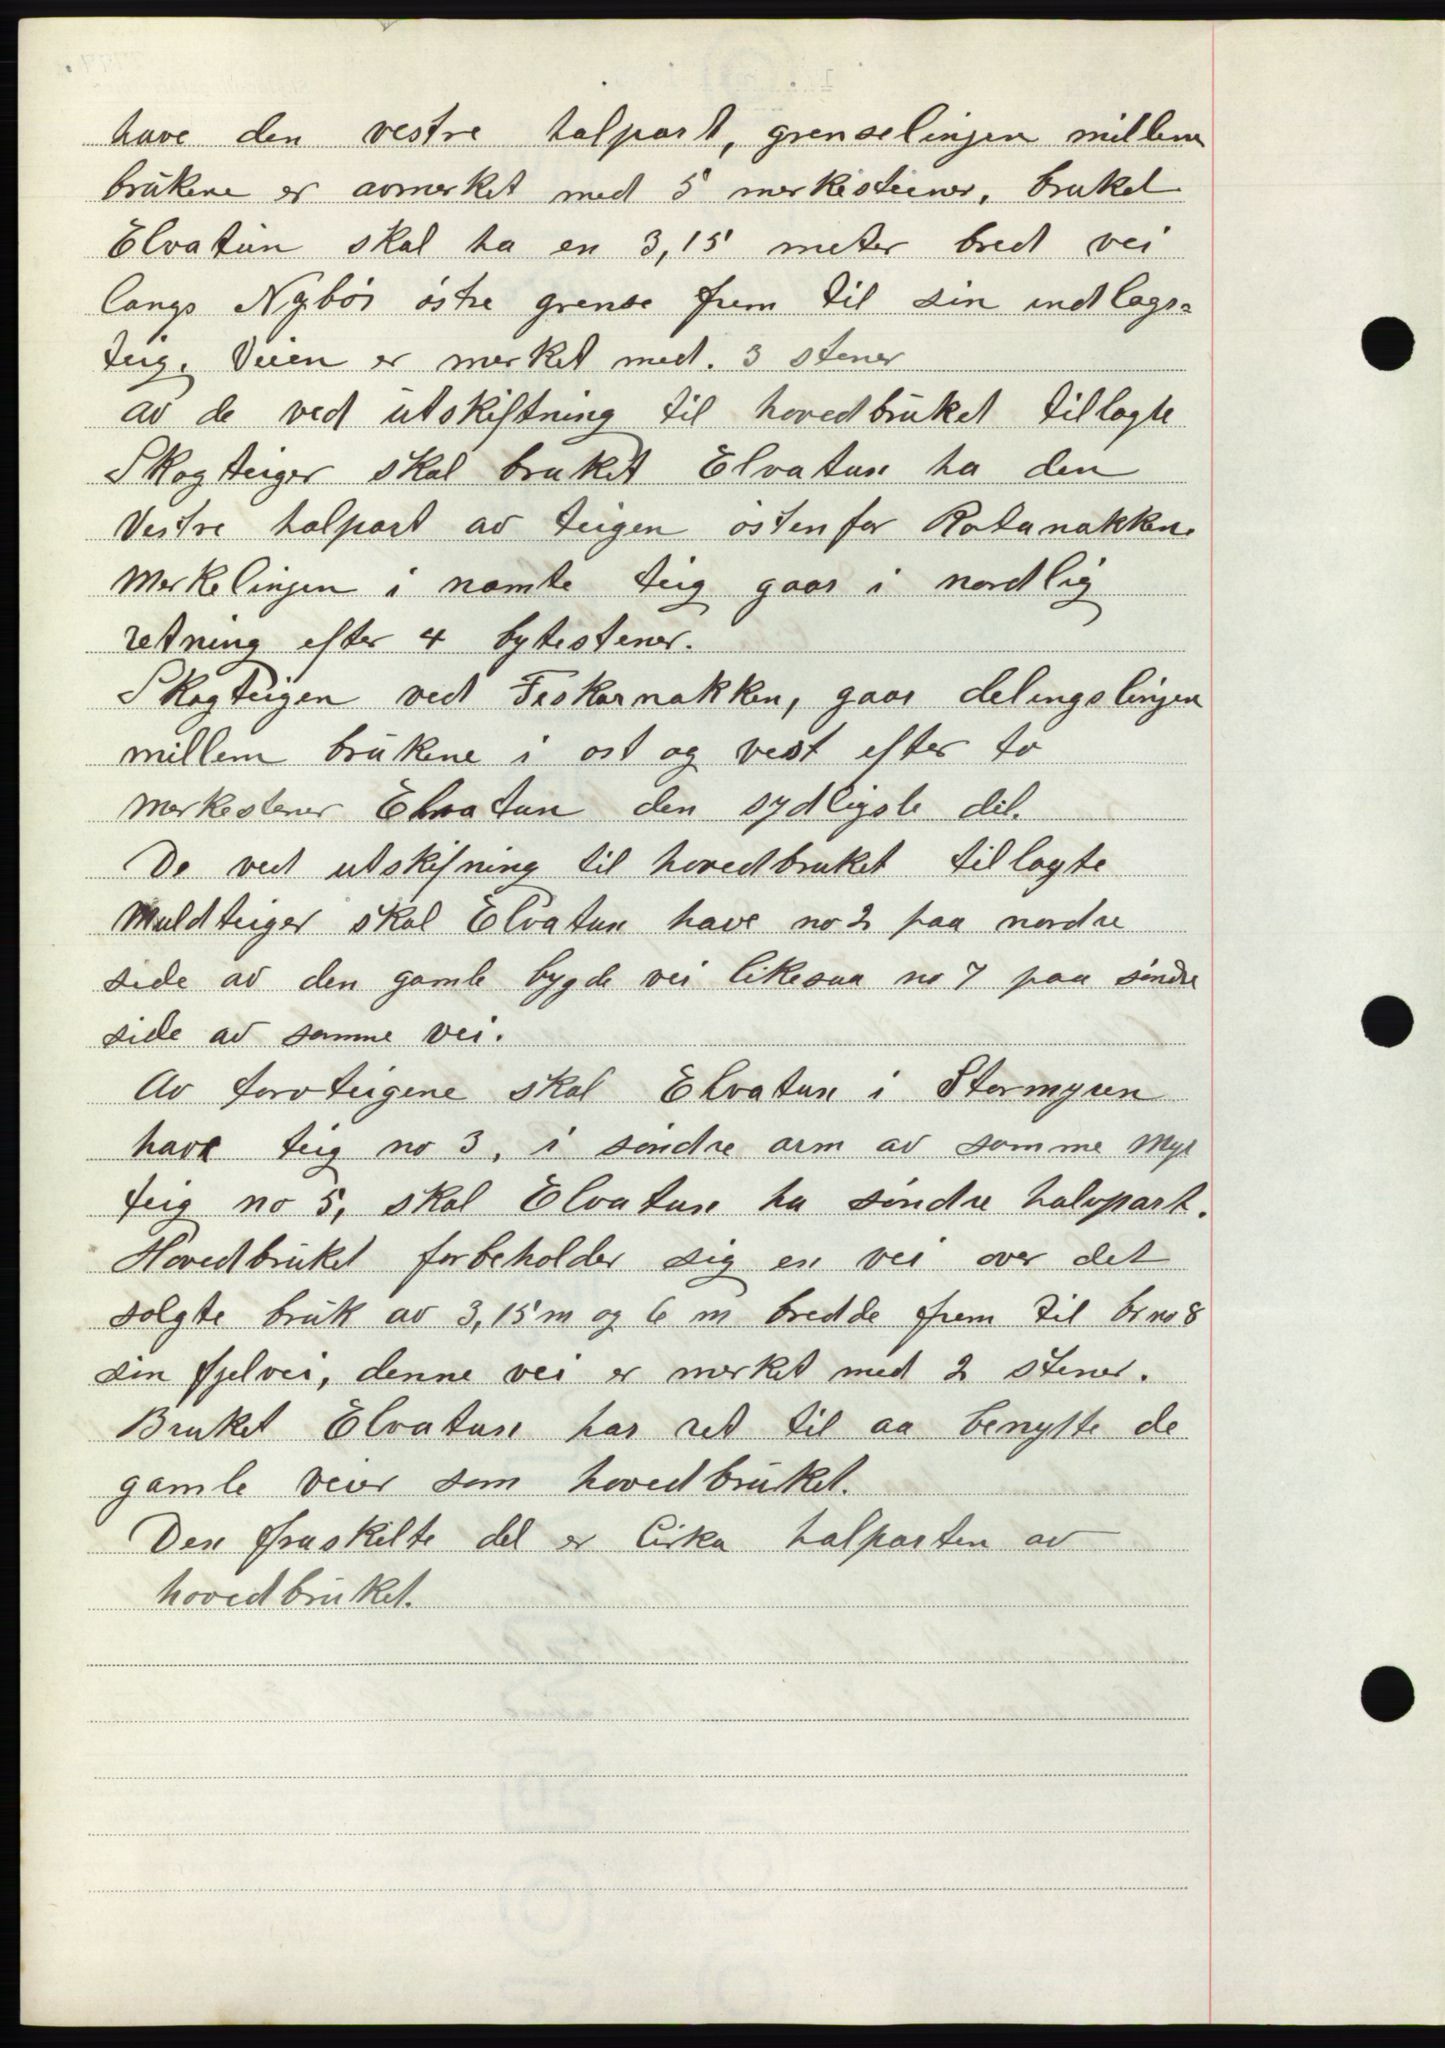 have den vestre halpart, grenselinjen millem
brukene er avmerket med 5 merkesteiner, bruket
Elvatun skal ha en 3,15 meter bred vei
langs Nybös östre grense frem til sin indlags=
teig. Veien er merket med. 3 stener
av de ved utskiftning til hovedbruket tillagte
Skogteiger skal bruket Elvatun ha den
Vestre halpart av teigen östenfor Rotanakken.
Merkelinjen i namte teig gaar i nordlig
retning efter 4 bytestener.
Skogteigen ved Feskarnakken, gaar delingslinjen
millem brukene i ost og vest efter to
merkestener Elvatun den sydligste del.
De ved utskifning til hovedbruket tillagte
Muldteiger skal Elvatun have no 2 paa nordre
side av den gamle bygde vei likesaa no 7 paa söndre
side av samme vei.
Av torvteigene skal Elvatun i Stormyren
have teig no 3, i söndre arm av samme Myr
teig no 5, skal Elvatun ha söndre halvpart.
Hovedbruket forbeholder sig en vei over det
solgte bruk av 3,15 m og 6 m bredde frem til br no 8
sin fjelvei, denne vei er merket med 2 stener.
Bruket Elvatun har ret til aa benytte de
gamle veier som hovedbruket.
Den fraskilte del er Cirka halparten av
hovedbruket.